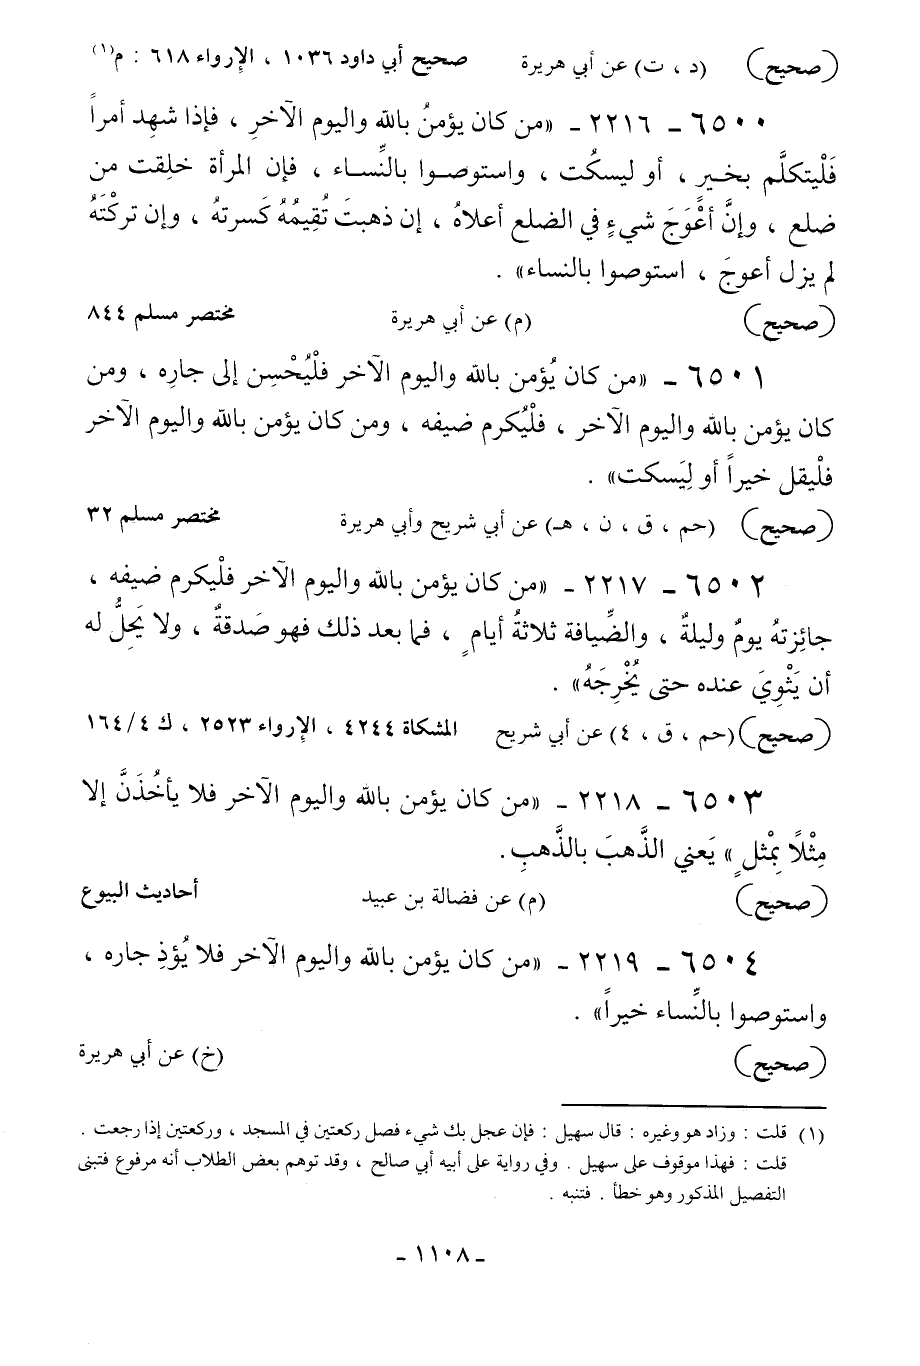 (صحيح) (د ، ت) عن أبي هريرة صحيح أبي داود ١٠٣٦ ، الإرواء ٦١٨ : م(١)
٦٥٠٠ ـ ٢٢١٦ ـ «من كان يؤمنُ بالله واليوم الآخرِ ، فإذا شهِد أمراً
فَلْيتكلَّم بخيرٍ ، أو ليسكُت ، واستوصوا بالنِّساء ، فإن المرأة خلِقت من
ضلع ، وإنَّ أعْوَجَ شيءٍ في الضلع أعلاهُ ، إن ذهبتَ تُقِيمُهُ كَسرتهُ ، وإن تركْتَهُ
لم يزل أعوجَ ، استوصوا بالنساء» .
(صحيح) (م) عن أبي هريرة مختصر مسلم ٨٤٤
٦٥٠١ ـ «من كان يُؤمن بالله واليوم الآخر فلْيُحْسِن إلى جارِه ، ومن
كان يؤمن بالله واليوم الآخر ، فلْيُكرم ضيفه ، ومن كان يؤمن بالله واليوم الآخر
فلْيقل خيراً أو لِيَسكت» .
(صحيح) (حم ، ق ، ن ، هـ) عن أبي شريح وأبي هريرة مختصر مسلم ٣٢
٦٥٠٢ ـ ٢٢١٧ ـ «من كان يؤمن بالله واليوم الآخر فلْيكرم ضيفه ،
جائِزتهُ يومٌ وليلةٌ ، والضِّيافة ثلاثةُ أيام ٍ ، فما بعد ذلك فهو صَدقةٌ ، ولا يَحِلُّ له
أن يَثْوِيَ عنده حتى يُخْرِجَهُ» .
(صحيح) (حم ، ق ، ٤) عن أبي شريح المشكاة ٤٢٤٤ ، الإرواء ٢٥٢٣ ، ك ١٦٤/٤
٦٥٠٣ ـ ٢٢١٨ ـ «من كان يؤمن بالله واليوم الآخر فلا يأخُذَنَّ إلا
مِثْلاً بِمْثل ٍ» يَعني الذَّهبَ بالذَّهبِ.
(صحيح) (م) عن فضالة بن عبيد أحاديث البيوع
٦٥٠٤ ـ ٢٢١٩ ـ «من كان يؤمن بالله واليوم الآخر فلا يُؤذِ جاره ،
واستوصوا بالنِّساء خيراً» .
(صحيح) (خ) عن أبي هريرة
(١) قلت : وزاد هو وغيره : قال سهيل : فإن عجل بك شيء فصل ركعتين في المسجد ، وركعتين إذا رجعت .
قلت : فهذا موقوف على سهيل . وفي رواية على أبيه أبي صالح ، وقد توهم بعض الطلاب أنه مرفوع فتبنى
التفصيل المذكور وهو خطأ . فتنبه .
ـ ١١٠٨ ـ